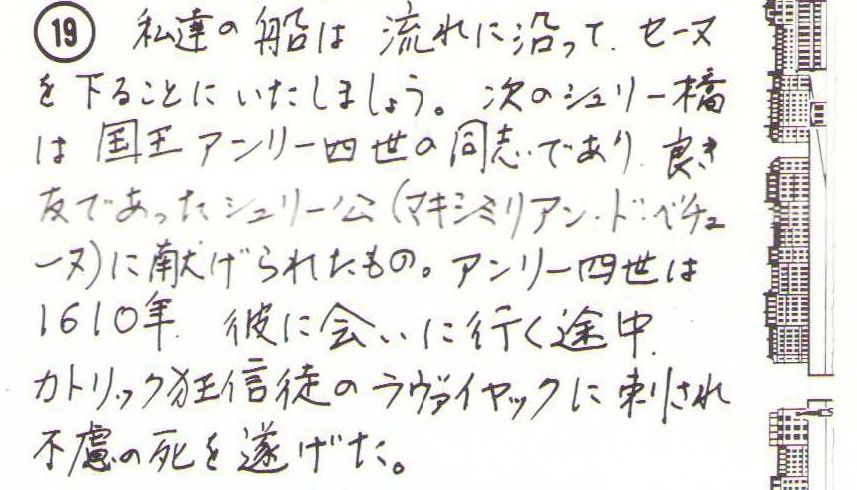 19 私達の船は 流れに沿って、セーヌ
を下ることにいたしましょう。次のシュリー橋
は国王アンリー四世の同志であり、良き
友であったシュリー公(マキシミリアン・ド・ベチュ
ーヌ)に献げられたもの。アンリー四世は
1610年、彼に会いに行く途中、
カトリック狂信徒のラヴァイヤックに刺され
不慮の死を遂げた。